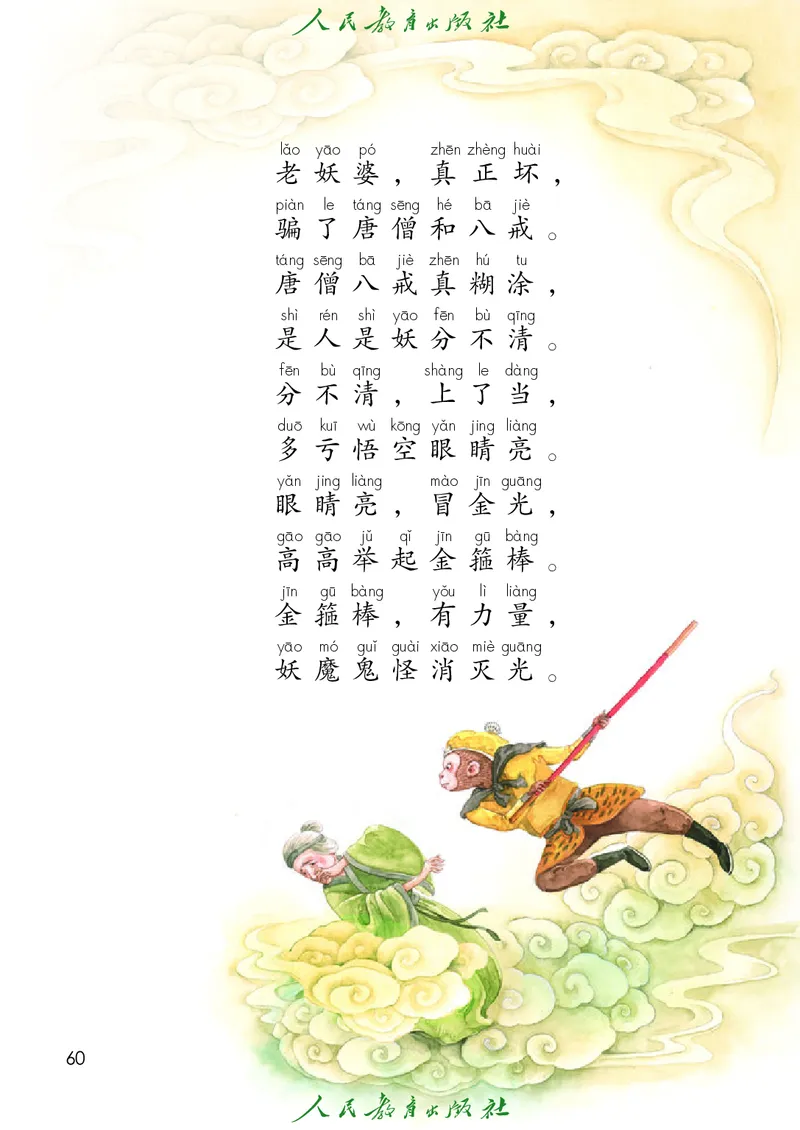 人民教育出版社
lǎo yāo pó zhēn zhèng huài
老妖婆，真正坏，
piàn le táng sēng hé bā jiè
骗了唐僧和八戒。
táng sēng bā jiè zhēn hú tu
唐僧八戒真糊涂，
shì rén shì yāo fēn bù qīng
是人是妖分不清。
fēn bù qīng shàng le dàng
分不清，上了当，
duō kuī wù kōng yǎn jing liàng
多亏悟空眼睛亮。
yǎn jing liàng mào jīn guāng
眼睛亮，冒金光，
gāo gāo jǔ qǐ jīn gū bàng
高高举起金箍棒。
jīn gū bàng yǒu lì liàng
金箍棒，有力量，
yāo mó guǐ guài xiāo miè guāng
妖魔鬼怪消灭光。
60
人民教育出版社